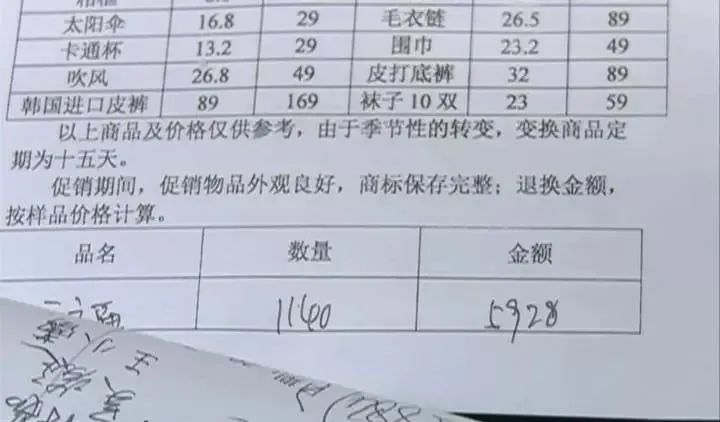 太阳伞 16.8 29 毛衣链 26.5 89
卡通杯 13.2 29 围巾 23.2 49
吹风 26.8 49 皮打底裤 32 89
韩国进口皮裤 89 169 袜子10双 23 59
以上商品及价格仅供参考，由于季节性的转变，变换商品定
期为十五天。
促销期间，促销物品外观良好，商标保存完整；退换金额，
按样品价格计算。
品名 数量 金额
1140 5928